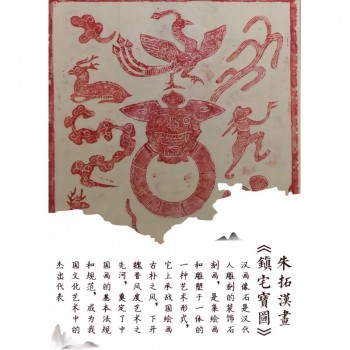 朱拓漢畫
《鎮宅寶圖》
汉画像石是汉代
人雕刻的装饰石
刻画，是集绘画
和雕塑于一体的
一种艺术形式，
它上承战国绘画
古朴之风，下开
魏晋风度艺术之
先河，奠定了中
国画的基本法规
和规范，成为我
国文化艺术中的
杰出代表